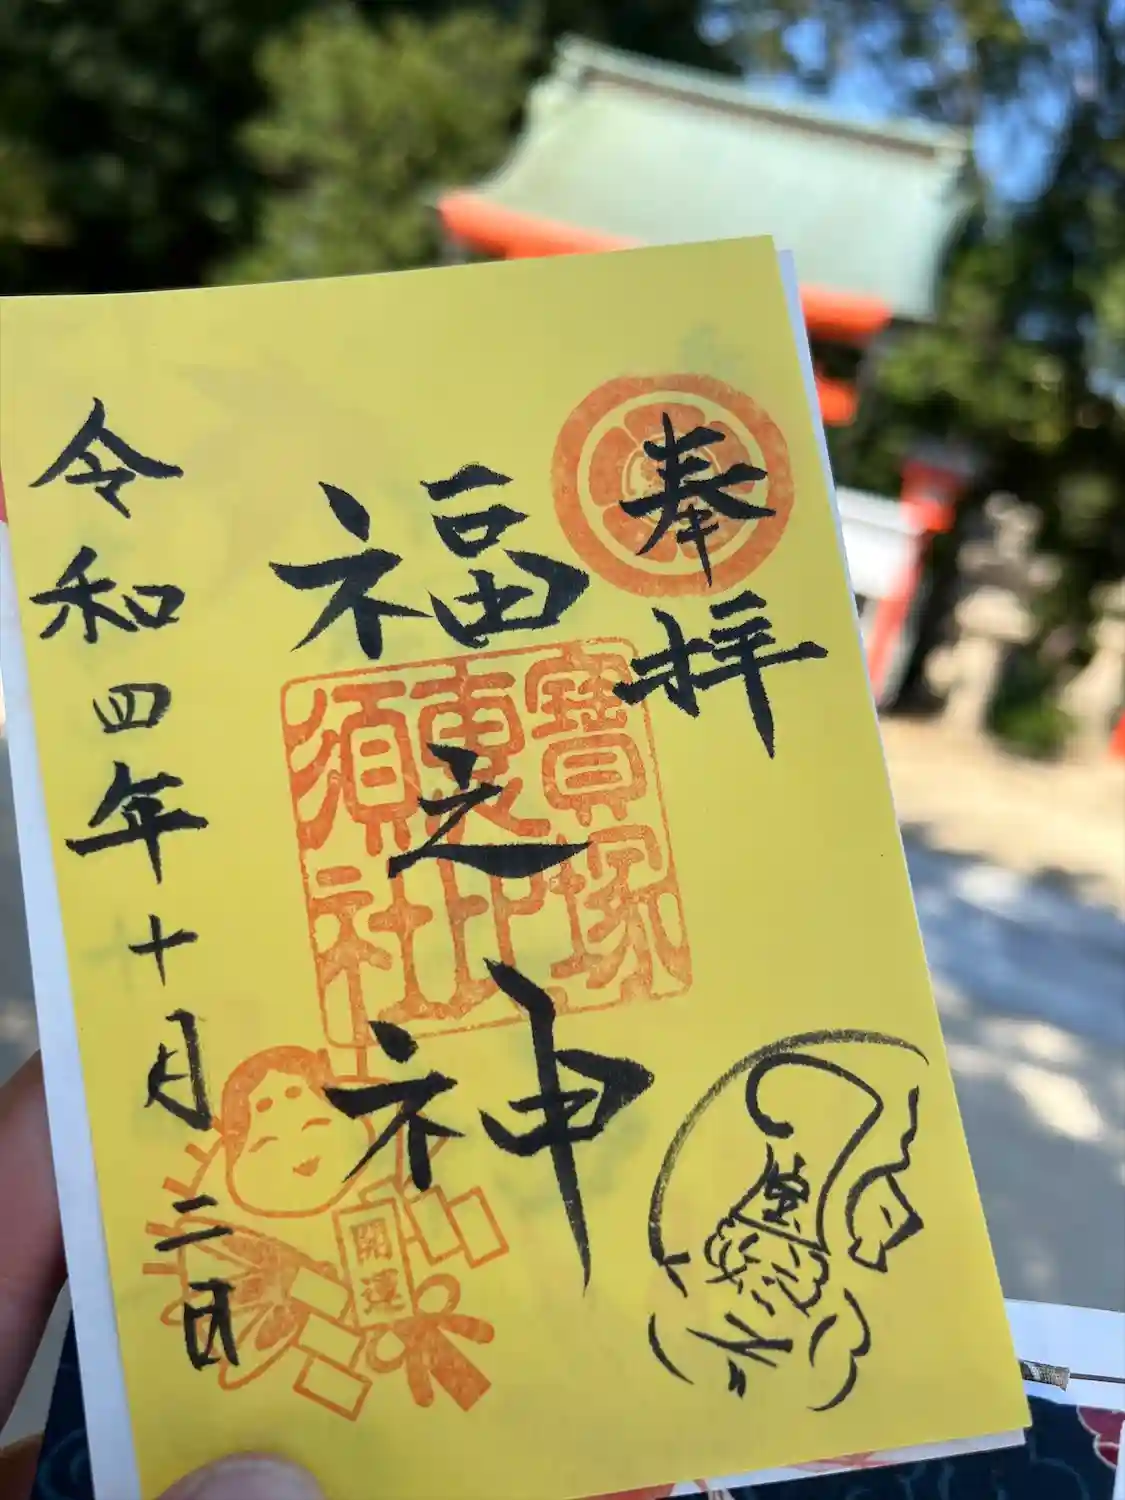 奉拝
福之神
寶塚
恵比
須社
令和四年十月二日
開運